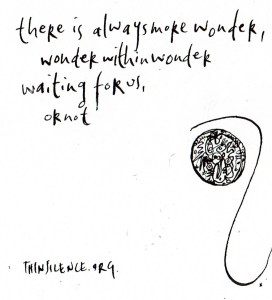 there is always more wonder,
wonder within wonder
waiting for us,
or not
THINSILENCE.ORG.